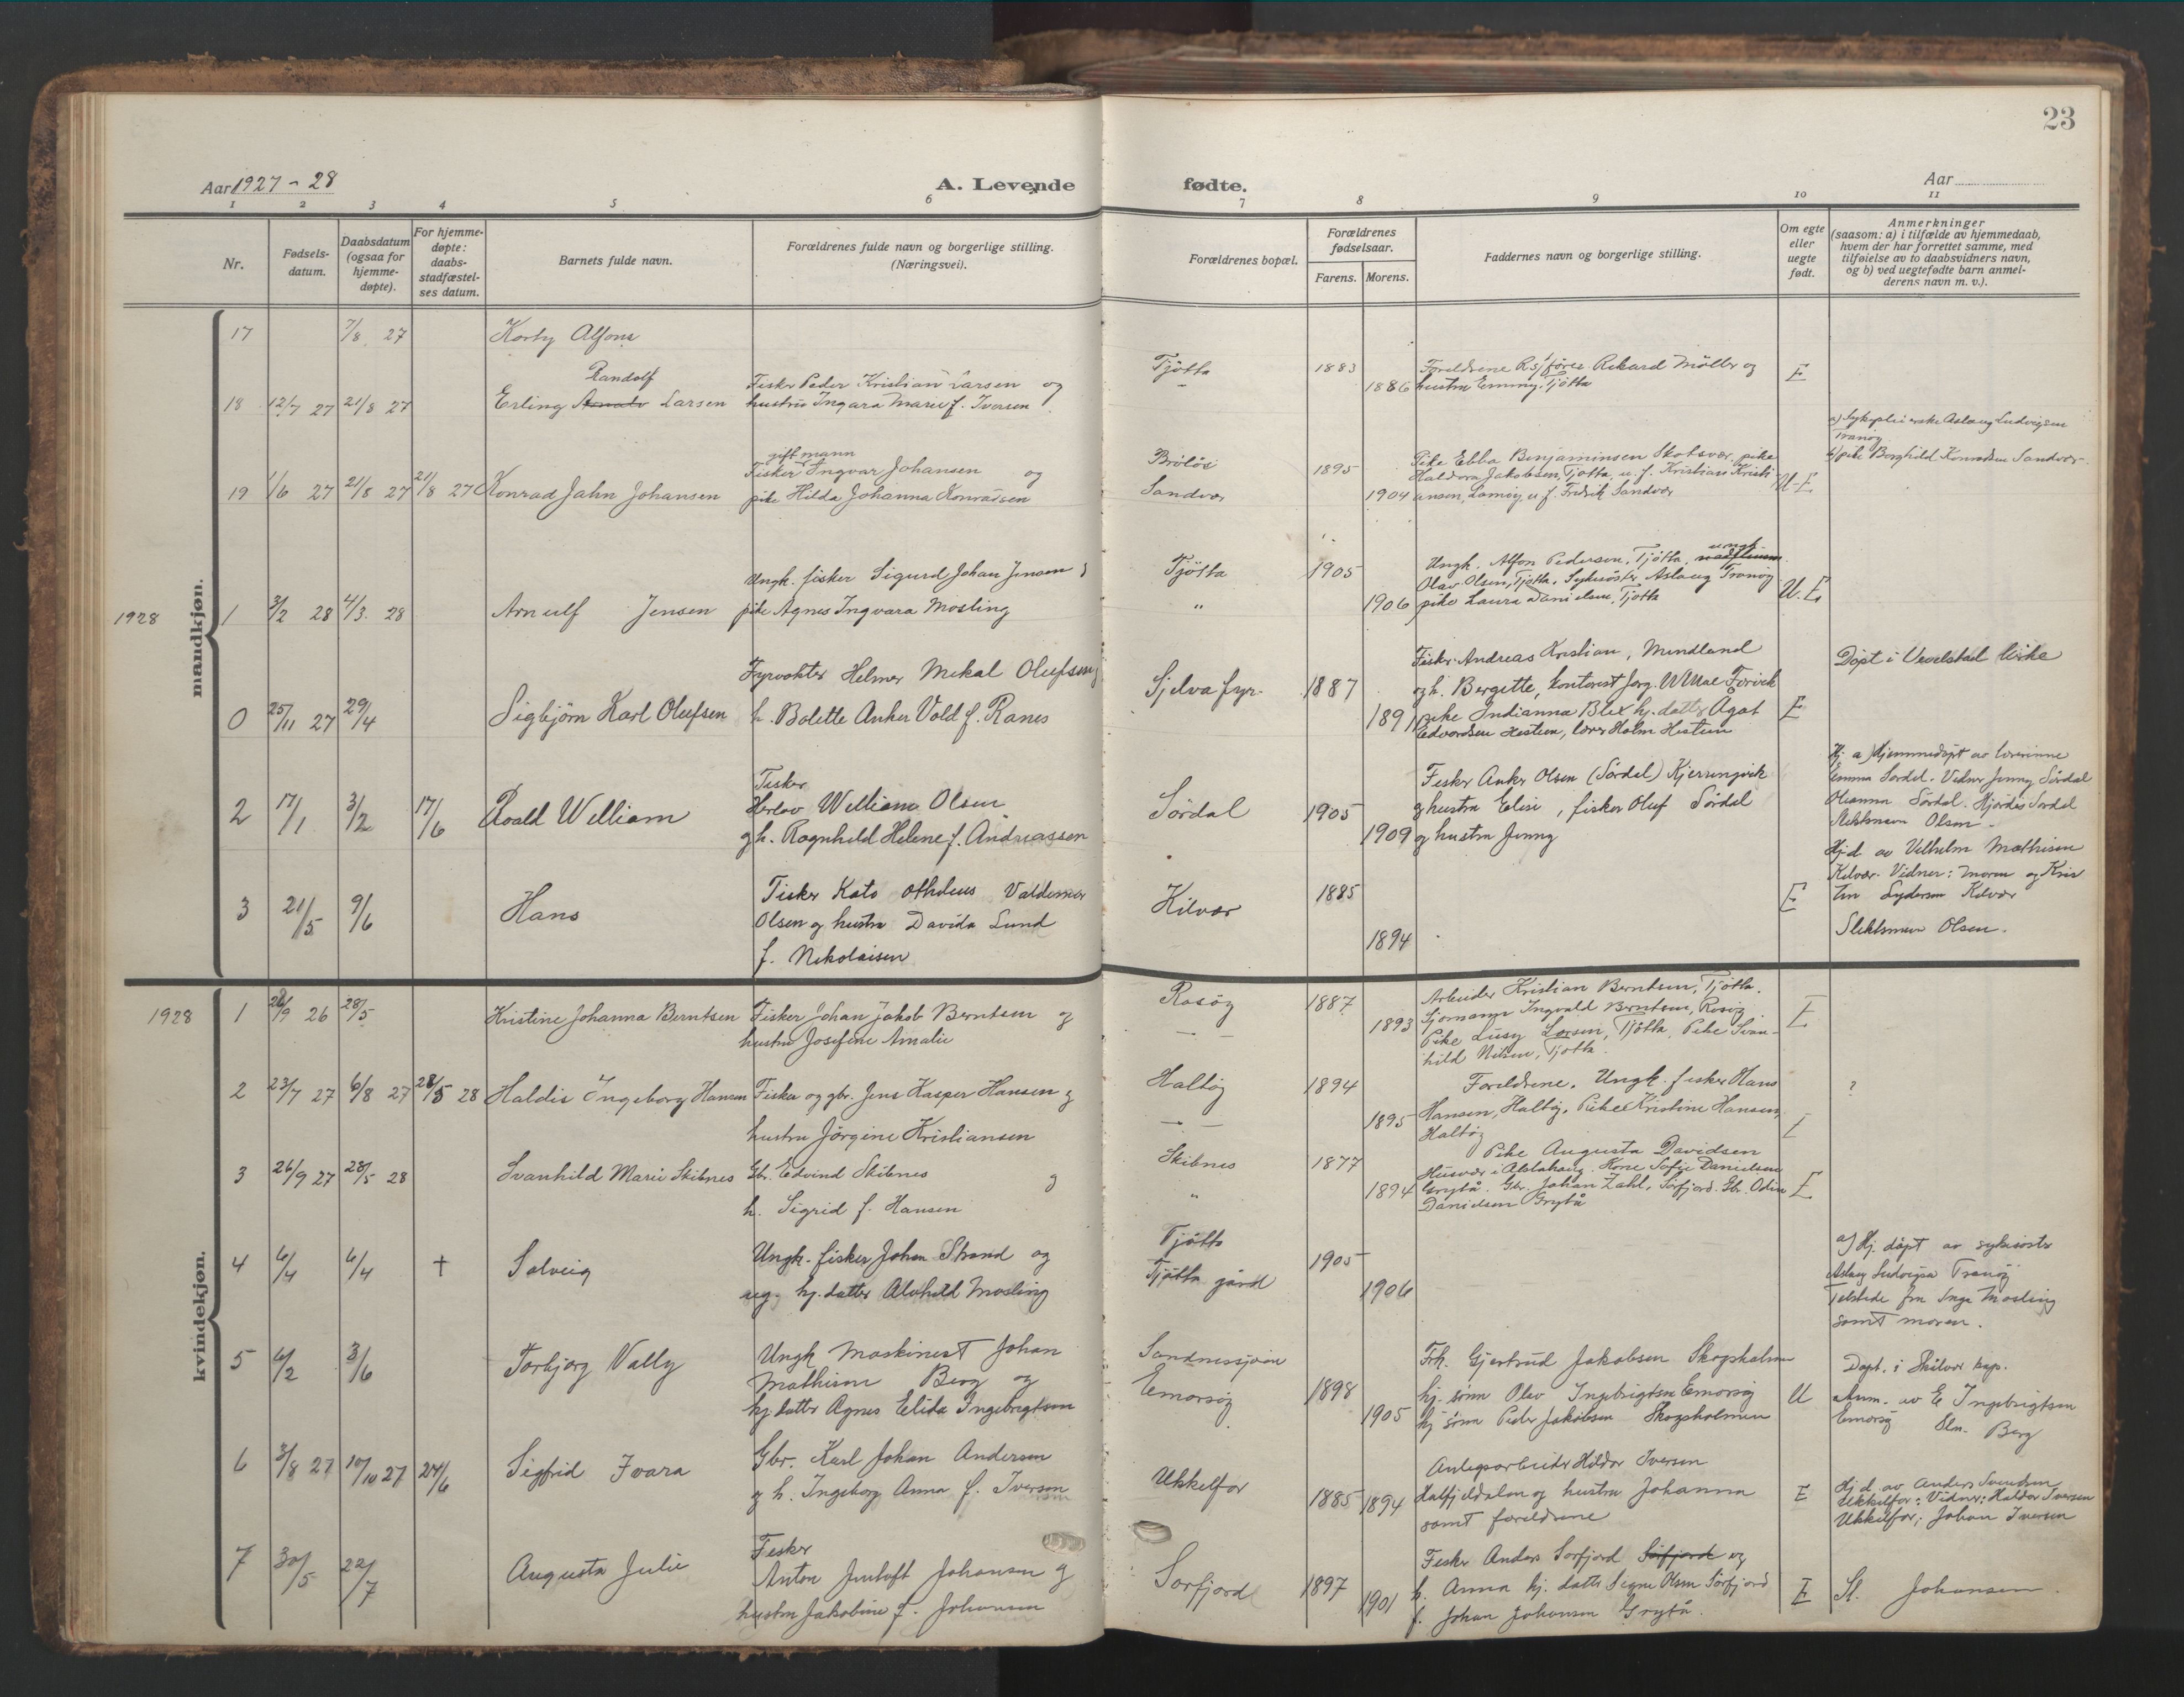 23
Aar 1927 - 28
A. Levende fødte.
Aar
1 2 3 4 5 6 7 8 9 10 11
Nr.
Fødsels-
datum.
Daabsdatum
(ogsaa for
hjemme-
døpte).
For hjemme-
døpte:
daabs-
stadfæstel-
ses datum.
Barnets fulde navn.
Forældrenes fulde navn og borgerlige stilling.
(Næringsvei).
Forældrenes bopæl.
Forældrenes
fødselsaar.
Farens. Morens.
Faddernes navn og borgerlige stilling.
Om egte
eller
uegte
født.
Anmerkninger
(saasom: a) i tilfælde av hjemmedaab,
hvem der har forrettet samme, med
tilføielse av to daabsvidners navn,
og b) ved uegtefødte barn anmel-
derens navn m. v.).
mandkjøn.
17 7/8 27 Korty Alfons
Randolf
18 12/7 27 21/8 27 Erling Larsen
Fisker Peder Kristian Larsen og
hustru Ingara Marie f. Iversen
Tjøtta
1883
1886
Foreldrene Rikard Møller og
hustru Emmy, Tjøtta
E
19 1/6 27 21/8 27 21/8 27 Konrad Jahn Johansen
gift mann
Fisker Ingvar Johansen og
pike Hilda Johanna Konradsen
Brøløs
Sandvær
1895
1904
Pike Ebba Benjaminsen Skotsvær, pike
Haldora Jakobsen, Tjøtta, u. f. Kristian Kristi
ansen, u. f. Fredrik Sandvær
U-E
a) Sykepleierske Aslaug Ludvigsen
Tranøy
b) pike Borghild Konradsen Sandvær.
1928
1 3/2 28 4/3. 28 Arnulf Jensen
Ungk. fisker Sigurd Johan Jensen
pike Agnes Ingvara Mosling
Tjøtta
"
1905
1906
ungk.
Ungk. Alfon Pedersen, Tjøtta,
Olav Olsen, Tjøtta. Sykesøster Aslaug Tranøy
pike Laura Danielsen, Tjøtta
U. E
0 25/11 27 29/4 Sigbjørn Karl Olufsen
Fyrvokter Helmer Mikal Olufsen
h. Bolette Anker Vold f. Ranes
Sjelva fyr.
1887
1891
Fisker Andreas Kristian, Mindland
og h. Bergitte, kontorist Jørg. Forvik
pike Indianna Blix hj. datter Agot
Edvardsen Hestun, lærer Holm Hestun
E
Døpt i Vevelstad kirke
2 17/1 3/2 17/6 Roald William
Fisker
Herlov William Olsen
og h. Ragnhild Helene f. Andreassen
Sørdal
1905
1909
Fisker Anker Olsen (Sørdal) Kjerringvik
og hustru Elise, fisker Oluf Sørdal
og hustru Jenny
Hj. a) Hjemmedøpt av lærerinne
Emma Sørdal. Vidner Jenny Sørdal
Oleanna Sørdal. Hjørdis Sørdal
Slektsnavn Olsen -
3 21/5 9/6 Hans
Fisker Kato Othdeus Valdemar
Olsen og hustru Davida Lund
f. Nikolaisen
Kilvær
1885
1894
E
Hj.d. av Vilhelm Mathisen
Kilvær. Vidner: Moren og Kris
tin Sydersen Kilvær
Slektsnavn Olsen.
kvindekjøn.
1928
1 26/9 26 28/5 Kristine Johanna Berntsen
Fisker Johan Jakob Berntsen og
hustru Josefine Amalie
Rosøy
1887
1893
Arbeider Kristian Berntsen, Tjøtta.
Sjømann Ingvald Berntsen, Rosøy
Pike Lusy Larsen, Tjøtta, Pike Svan-
hild Nilsen, Tjøtta.
E
2 23/7 27 6/8 27 28/5 28 Haldis Ingeborg Hansen
Fisker og gbr. Jens Kasper Hansen og
hustru Jørgine Kristiansen
Haltøy
1894
1895
Foreldrene. Ungk. fisker Hans
Hansen, Haltøy. Pike Kristine Hansen,
Haltøy
?
3 26/9 27 28/5 28 Svanhild Marie Skibnes
Gbr. Edvind Skibnes og
h. Sigrid f. Hansen
Skibnes
"
1877
1894
Pike Augusta Davidsen
Husvær i Alstahaug. Kone Sofie Danielsen
Grytå. Gbr. Johan Zahl, Sørfjord. Gbr. Odin
Danielsen Grytå
E
4 6/4 6/4 † Solveig
Ungk. fisker Johan Strand og
ug. hj. datter Alvhild Mosling
Tjøtta
Tjøtta gård
1905
1906
a) Hj. døpt av sykesøster
Aslaug Ludvigsen Tranøy
Tilstede fru Inga Mosling
samt moren.
5 6/2 3/6 Torbjørg Vally
Ungk Maskinist Johan
Mathisen Berg og
hj. datter Agnes Elida Ingebrigtsen
Sandnessjøen
Emorsøy
1898
1905
Frk. Gjertrud Jakobsen Skogsholmen
hj. sønn Olav Ingebrigtsen Emorsøy
hj. sønn Peder Jakobsen Skogsholmen
U
Døpt. i Skilvær kap.
Anm. av E Ingebrigtsen
Emorsøy Sln. Berg
6 3/8 27 10/10 27 24/6 Sigfrid Ivara
Gbr. Karl Johan Andersen
og h. Ingeborg Anna f. Iversen
Ukkelfor
1885 1894
Anlegsarbeider Haldor Iversen
Halfjeldalen og hustru Johanna
samt foreldrene
E
Hj.d. av Anders Svendsen
Ukkelfor: Vidner: Haldor Iversen
Ukkelfor; Johan Iversen
7 30/5 22/7 Augusta Julie
Fisker
Anton Johansen og
hustru Jakobine f. Johansen
Sørfjord
1897
1901
Fisker Anders Sørfjord Sørfjord og
h. Anna hj. datter Signe Olsen Sørfjord
f. Johan Johansen Grytå.
E
Sl. Johansen